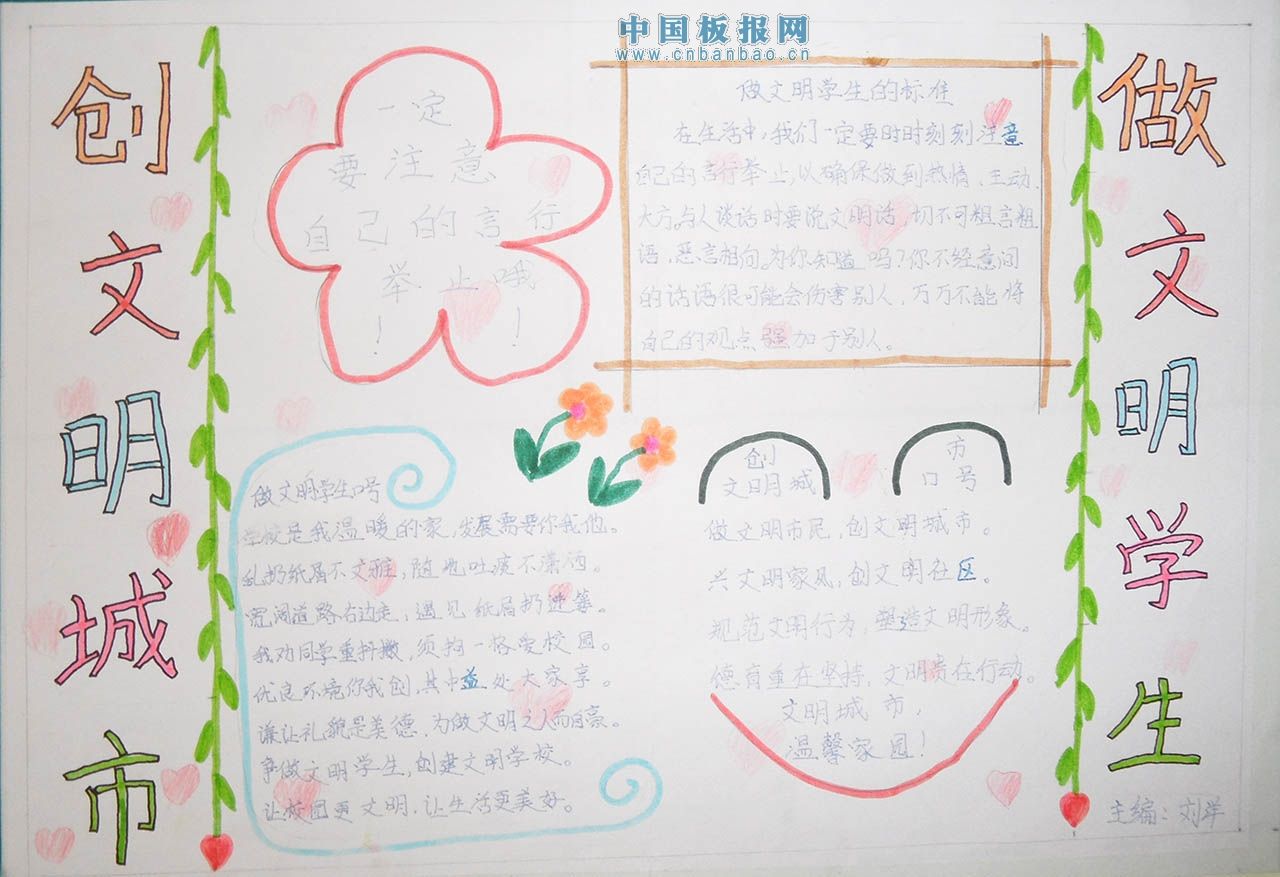 中国板报网
www.cnbanbao.cn
创文明城市
做文明学生
一定
要注意
自己的言行
举止哦
！ ！
做文明学生的标准
在生活中,我们一定要时时刻刻注意
自己的言行举止,以确保做到热情、主动、
大方。与人谈话时要说文明话,切不可粗言粗
语,恶言相向。为你知道吗?你不经意间
的话语很可能会伤害别人,万万不能将
自己的观点强加于别人。
做文明学生口号
学校是我温暖的家,发展需要你我他。
乱扔纸屑不文雅,随地吐痰不潇洒。
宽阔道路右边走,遇见纸屑扔进篓。
我劝同学重抖擞,须拘一格爱校园。
优良环境你我创,其中益处大家享。
谦让礼貌是美德,为做文明之人而自豪。
争做文明学生,创建文明学校。
让校园更文明,让生活更美好。
创
文明城
市
口号
做文明市民,创文明城市。
兴文明家风,创文明社区。
规范文明行为,塑造文明形象。
德育重在坚持,文明贵在行动。
文明城市,
温馨家园!
主编:刘洋